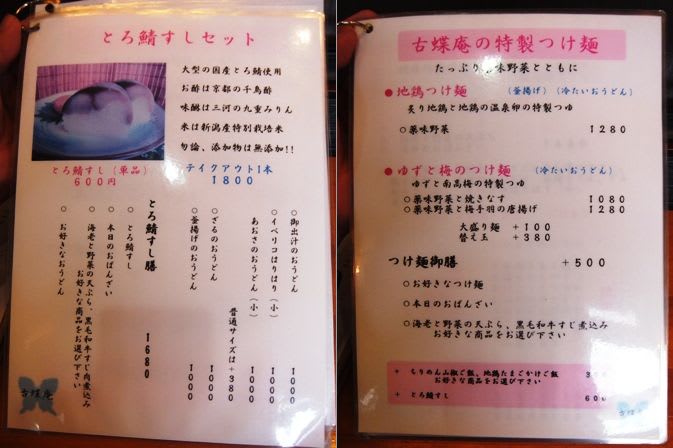 とろ鯖すしセット
大型の国産とろ鯖使用
お酢は京都の千鳥酢
味醂は三河の九重みりん
米は新潟産特別栽培米
勿論、添加物は無添加!!
とろ鯖すし(単品)
600円
テイクアウト1本
1800
○御出汁のおうどん 1000
○イベリコはりはり(小) 1000
あおさのおうどん(小) 1000
普通サイズは+380
○ざるのおうどん 1000
○釜揚げのおうどん 1000
とろ鯖すし膳 1680
○とろ鯖すし
○本日のおばんざい
○海老と野菜の天ぷら、黒毛和牛すじ肉煮込み
お好きな商品をお選び下さい
○お好きなおうどん
古蝶庵
古蝶庵の特製つけ麺
たっぷり薬味野菜とともに
●地鶏つけ麺 (釜揚げ)(冷たいおうどん)
炙り地鶏と地鶏の温泉卵の特製つゆ
○薬味野菜 1280
●ゆずと梅のつけ麺 (冷たいおうどん)
ゆずと南高梅の特製つゆ
○薬味野菜と焼きなす 1080
○薬味野菜と梅手羽の唐揚げ 1280
大盛り麺 +100
替え玉 +380
つけ麺御膳 +500
○お好きなつけ麺
○本日のおばんざい
○海老と野菜の天ぷら、黒毛和牛すじ煮込み
お好きな商品をお選び下さい
+ ちりめん山椒ご飯、地鶏たまごかけご飯
お好きな商品をお選び下さい
+ とろ鯖すし 600
古蝶庵